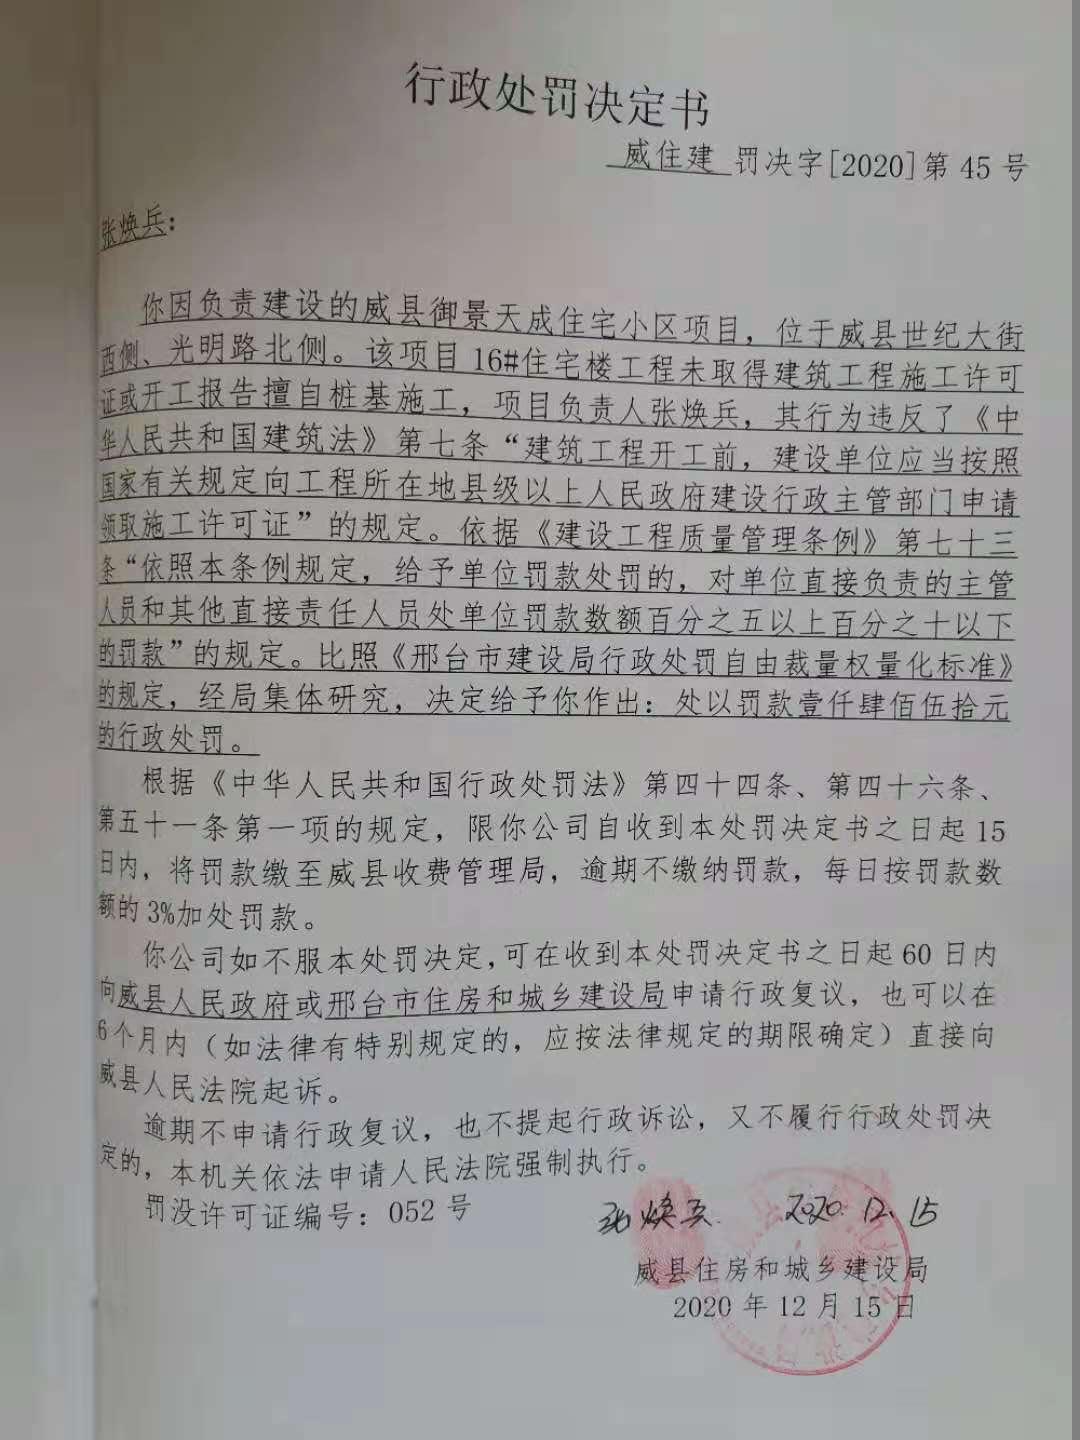 行政处罚决定书
威住建 罚决字[2020]第 45 号
张焕兵：
你因负责建设的威县御景天成住宅小区项目，位于威县世纪大街
西侧、光明路北侧。该项目16#住宅楼工程未取得建筑工程施工许可
证或开工报告擅自桩基施工，项目负责人张焕兵，其行为违反了《中
华人民共和国建筑法》第七条“建筑工程开工前，建设单位应当按照
国家有关规定向工程所在地县级以上人民政府建设行政主管部门申请
领取施工许可证”的规定。依据《建设工程质量管理条例》第七十三
条“依照本条例规定，给予单位罚款处罚的，对单位直接负责的主管
人员和其他直接责任人员处单位罚款数额百分之五以上百分之十以下
的罚款”的规定。比照《邢台市建设局行政处罚自由裁量权量化标准》
的规定，经局集体研究，决定给予你作出：处以罚款壹仟肆佰伍拾元
的行政处罚。
根据《中华人民共和国行政处罚法》第四十四条、第四十六条、
第五十一条第一项的规定，限你公司自收到本处罚决定书之日起 15
日内，将罚款缴至威县收费管理局，逾期不缴纳罚款，每日按罚款数
额的 3%加处罚款。
你公司如不服本处罚决定，可在收到本处罚决定书之日起 60 日内
向威县人民政府或邢台市住房和城乡建设局申请行政复议，也可以在
6 个月内（如法律有特别规定的，应按法律规定的期限确定）直接向
威县人民法院起诉。
逾期不申请行政复议，也不提起行政诉讼，又不履行行政处罚决
定的，本机关依法申请人民法院强制执行。
罚没许可证编号：052 号
张焕兵. 2020.12.15
威县住房和城乡建设局
2020 年 12 月 15 日